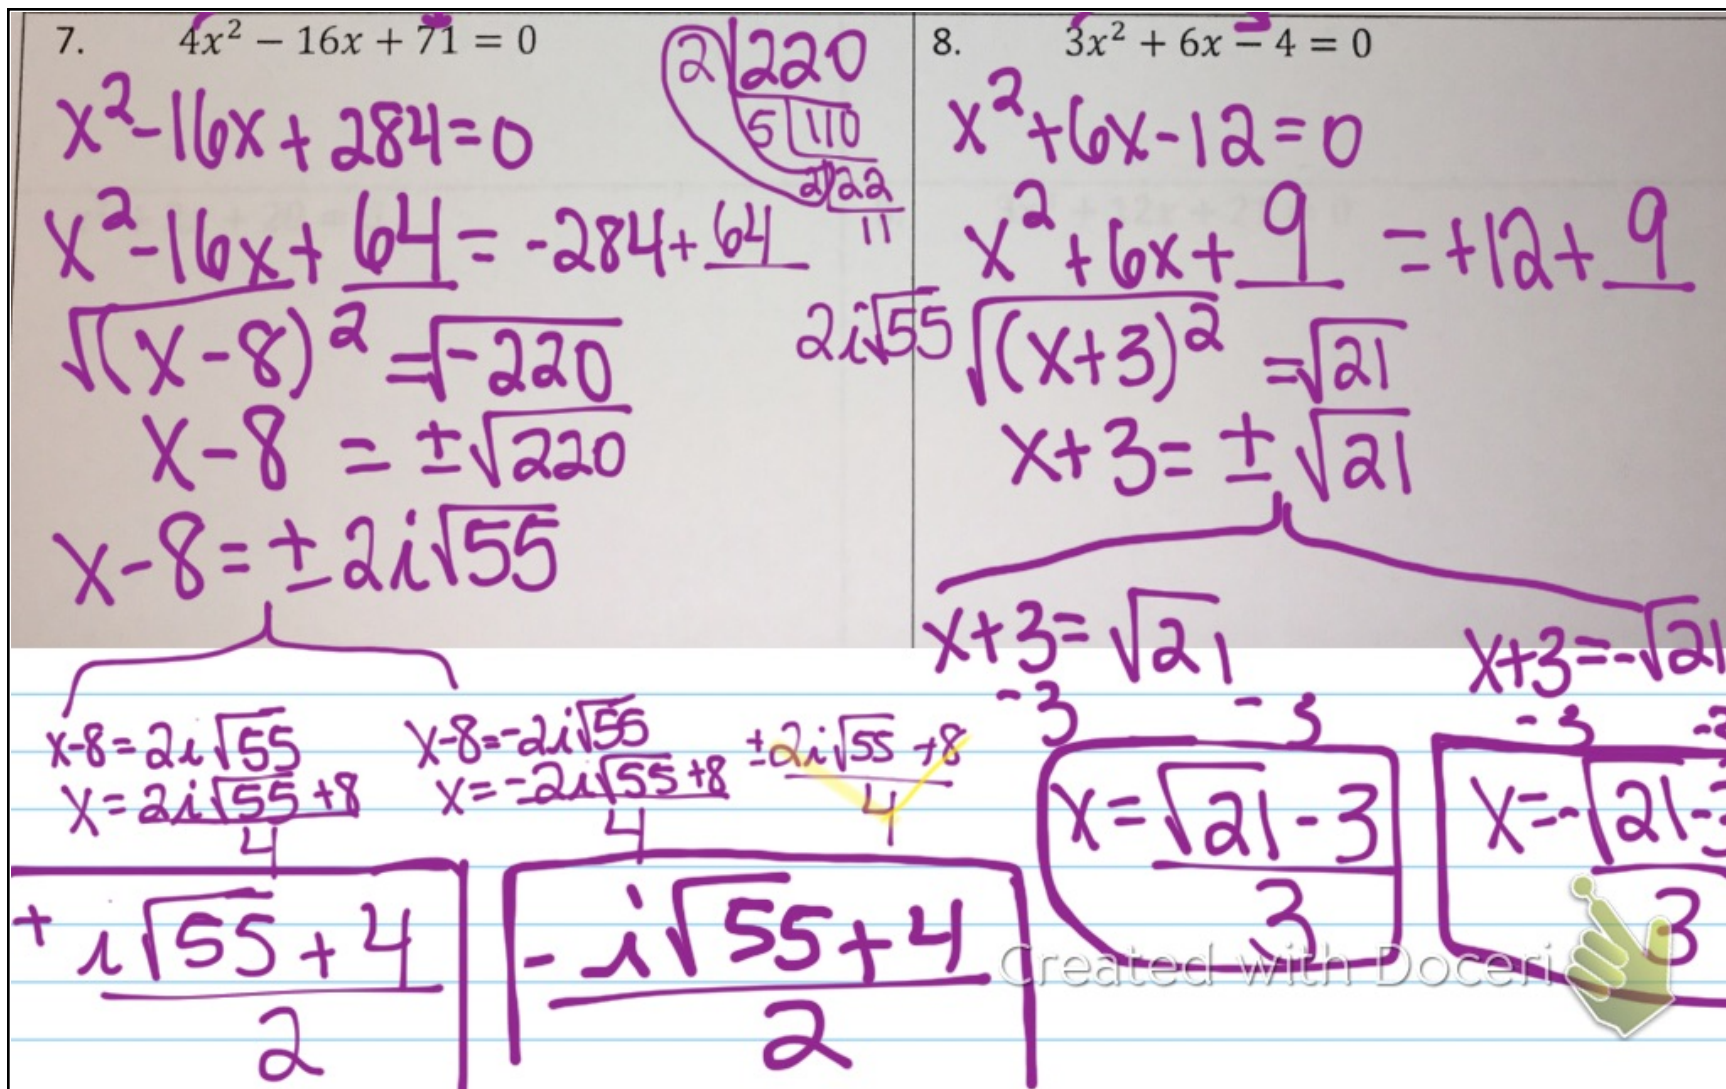 7. 4x² − 16x + 71 = 0
x²-16x+284=0
x²-16x+64=-284+64
√(x-8)²=√-220
x-8=±√220
x-8=±2i√55
2 220
5 110
2 22
11
2i√55
x-8=2i√55
x=2i√55+8
4
x-8=-2i√55
x=-2i√55+8
4
±2i√55+8
4
+i√55+4
2
-i√55+4
2
8. 3x² + 6x − 4 = 0
x²+6x-12=0
x²+6x+9=+12+9
√(x+3)²=√21
x+3=±√21
x+3=√21
-3 -3
x=√21-3
3
x+3=-√21
-3 -3
x=-√21-3
3
Created with Doceri